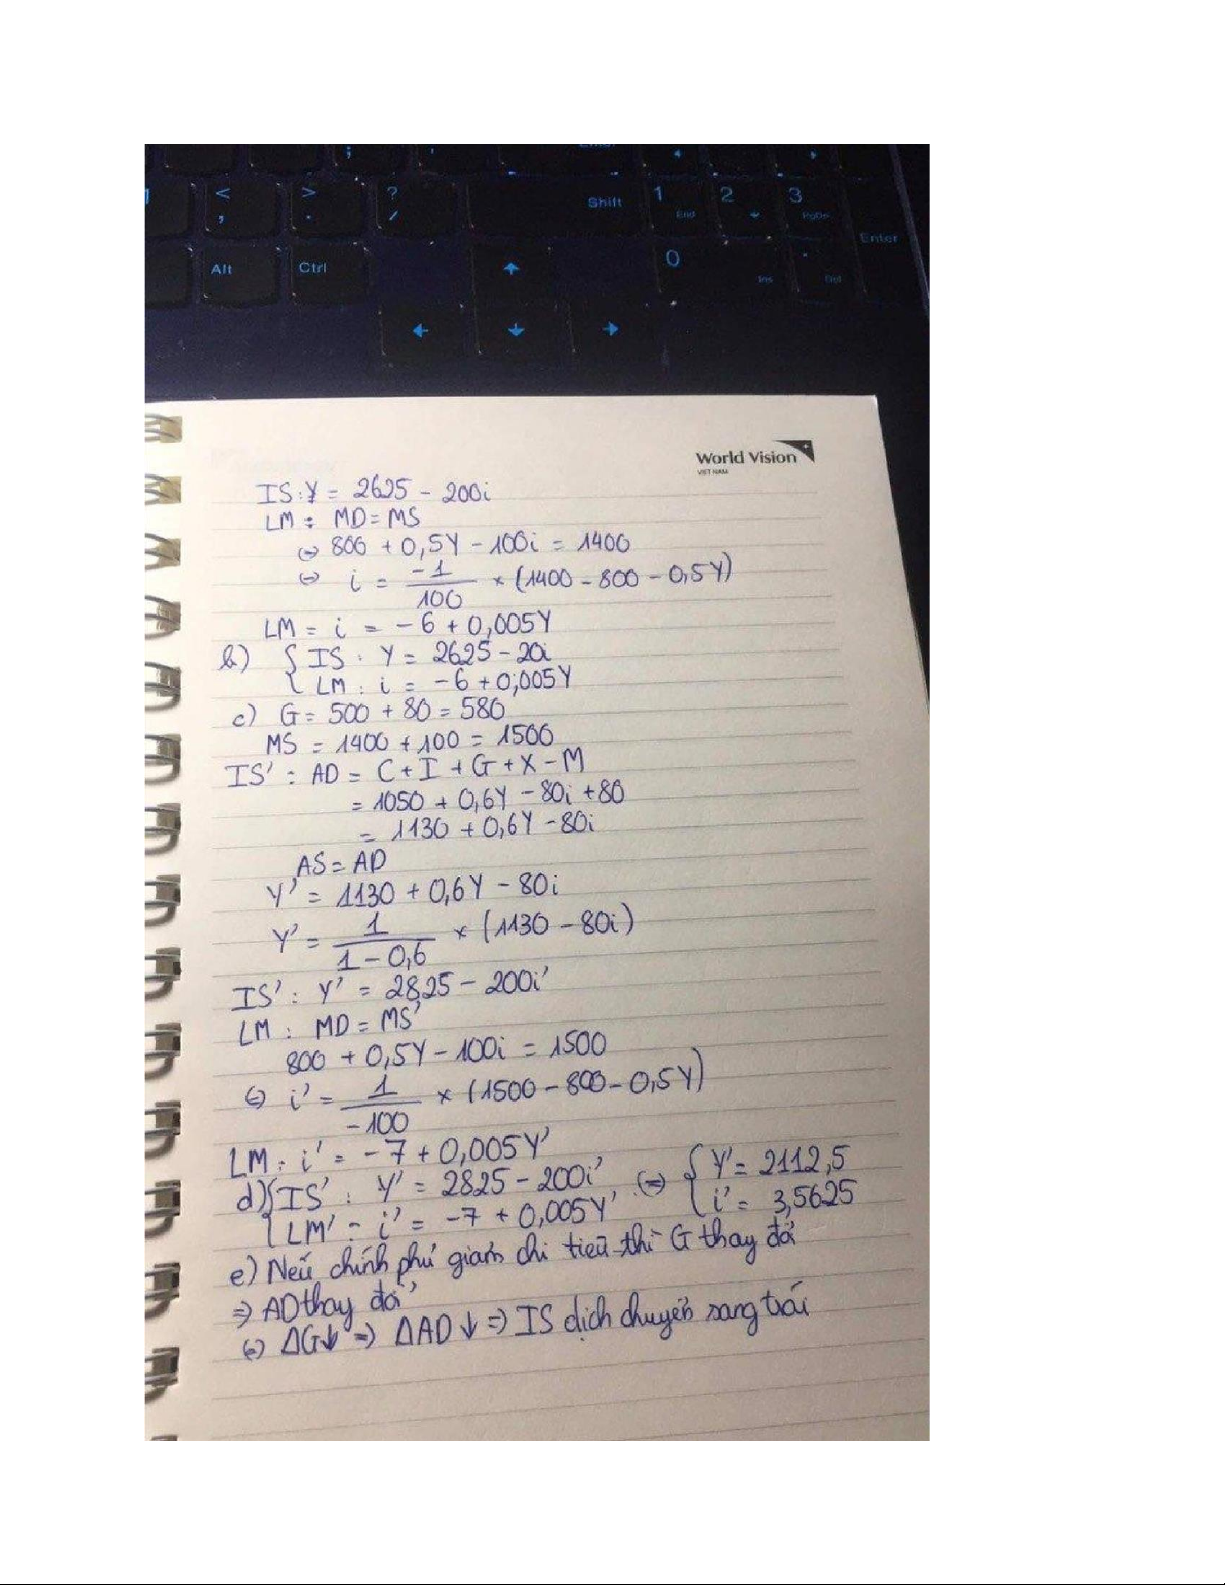 Shift
1
End
2
3
PgDn
Enter
Alt
Ctrl
0
Ins
Del
<
,
>
.
?
/
;
World Vision
VIET NAM
IS: Y = 2625 - 200i
LM : MD = MS
⇔ 800 + 0,5Y - 100i = 1400
⇔ i = -1/100 × (1400 - 800 - 0,5Y)
LM = i = -6 + 0,005Y
b) { IS : Y = 2625 - 20i
LM : i = -6 + 0,005Y
c) G = 500 + 80 = 580
MS = 1400 + 100 = 1500
IS' : AD = C + I + G + X - M
= 1050 + 0,6Y - 80i + 80
= 1130 + 0,6Y - 80i
AS = AD
Y' = 1130 + 0,6Y - 80i
Y' = 1/(1 - 0,6) × (1130 - 80i)
IS' : Y' = 2825 - 200i'
LM : MD = MS'
800 + 0,5Y - 100i = 1500
⇔ i' = 1/-100 × (1500 - 800 - 0,5Y)
LM : i' = -7 + 0,005Y'
d) { IS' : Y' = 2825 - 200i' ⇔ { Y' = 2112,5
LM' : i' = -7 + 0,005Y' i' = 3,5625
e) Nếu chính phủ giảm chi tiêu thì G thay đổi
⇒ AD thay đổi
⇔ ΔG↓ ⇒ ΔAD↓ ⇒ IS dịch chuyển sang trái